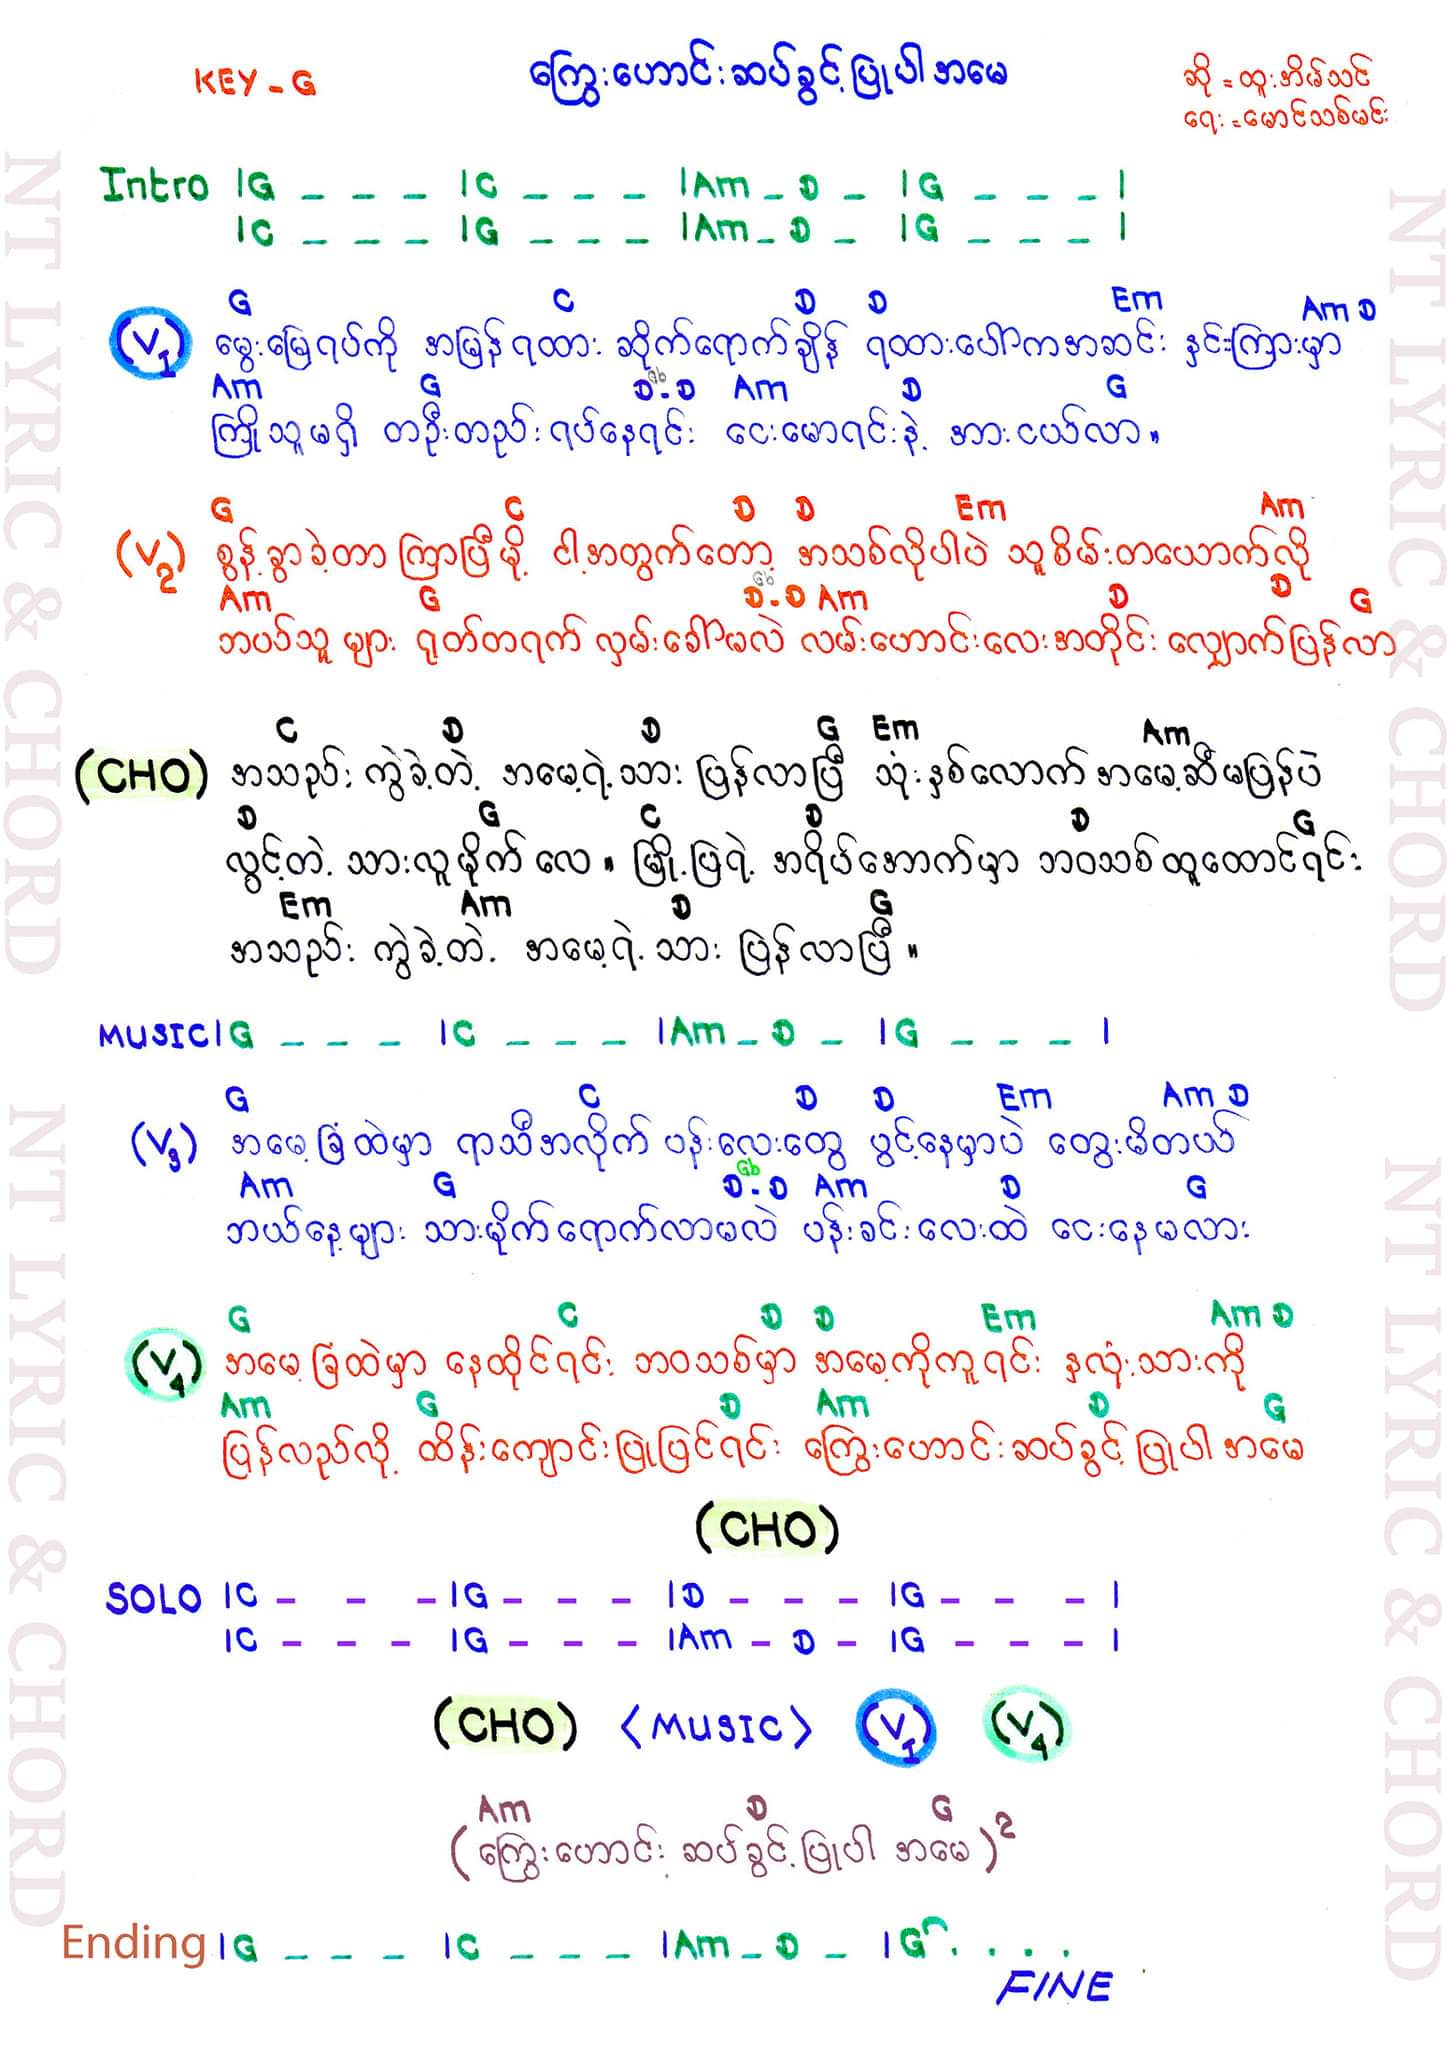 KEY - G
ကြွေးဟောင်းဆပ်ခွင့်ပြုပါအမေ
ဆို = ထူးအိမ်သင်
ရေး = မောင်သစ်မင်း
Intro |G _ _ _ |C _ _ _ |Am _ D _ |G _ _ _ |
|C _ _ _ |G _ _ _ |Am _ D _ |G _ _ _ |
G C D D Em Am D
(V1) မွေးမြေရပ်ကို အမြန်ရထား ဆိုက်ရောက်ချိန် ရထားပေါ်ကအဆင်း နှင်းကြားမှာ
Am G D . Gb D Am D G
ကြိုသူမရှိ တဦးတည်းရပ်နေရင်း ငေးမောရင်းနဲ့ အားငယ်လာ။
G C D D Em Am
(V2) စွန့်ခွာခဲ့တာ ကြာပြီမို့ ငါ့အတွက်တော့ အသစ်လိုပါပဲ သူစိမ်းတယောက်လို
Am G D . Gb D Am D D G
ဘယ်သူများ ရုတ်တရက် လှမ်းခေါ်မလဲ လမ်းဟောင်းလေးအတိုင်း လျှောက်ပြန်လာ
C D D G Em Am
(CHO) အသည်းကွဲခဲ့တဲ့ အမေ့ရဲ့သား ပြန်လာပြီ သုံးနှစ်လောက်အမေ့ဆီမပြန်ပဲ
D G C D D G
လွင့်တဲ့ သားလူမိုက်လေ။ မြို့ပြရဲ့ အရိပ်အောက်မှာ ဘဝသစ်ထူထောင်ရင်း
Em Am D G
အသည်းကွဲခဲ့တဲ့ အမေ့ရဲ့သား ပြန်လာပြီ။
MUSIC |G _ _ _ |C _ _ _ |Am _ D _ |G _ _ _ |
G C D D Em Am D
(V3) အမေ့ခြံထဲမှာ ရာသီအလိုက် ပန်းလေးတွေ ပွင့်နေမှာပဲ တွေးမိတယ်
Am G D . Gb D Am D G
ဘယ်နေ့များ သားမိုက်ရောက်လာမလဲ ပန်းခင်းလေးထဲ ငေးနေမလား
G C D D Em Am D
(V4) အမေ့ခြံထဲမှာ နေထိုင်ရင်း ဘဝသစ်မှာ အမေ့ကိုကူရင်း နှလုံးသားကို
Am G D Am D G
ပြန်လည်လို့ ထိန်းကျောင်းပြုပြင်ရင်း ကြွေးဟောင်းဆပ်ခွင့်ပြုပါအမေ
(CHO)
SOLO |C - - - |G - - - |D - - - |G - - - |
|C - - - |G - - - |Am - D - |G - - - |
(CHO) <MUSIC> (V1) (V4)
Am D G
(ကြွေးဟောင်း ဆပ်ခွင့်ပြုပါ အမေ)2
Ending |G _ _ _ |C _ _ _ |Am _ D _ |G . . . .
FINE
NT LYRIC & CHORD
NT LYRIC & CHORD
NT LYRIC & CHORD
NT LYRIC & CHORD